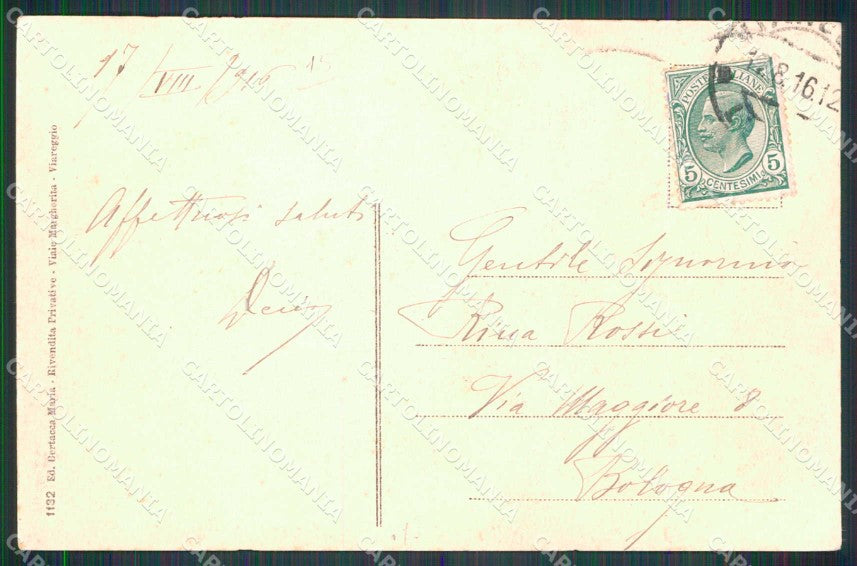 17 VIII 1916
Affettuosi saluti
Gentile Signorina
Rina Rossi
Via Maggiore 8
Bologna
POSTE ITALIANE
5 5
CENTESIMI
8.16.12
1132 Ed. Certacca Maria - Rivendita Privative - Viale Margherita - Viareggio
CARTOLINOMANIA